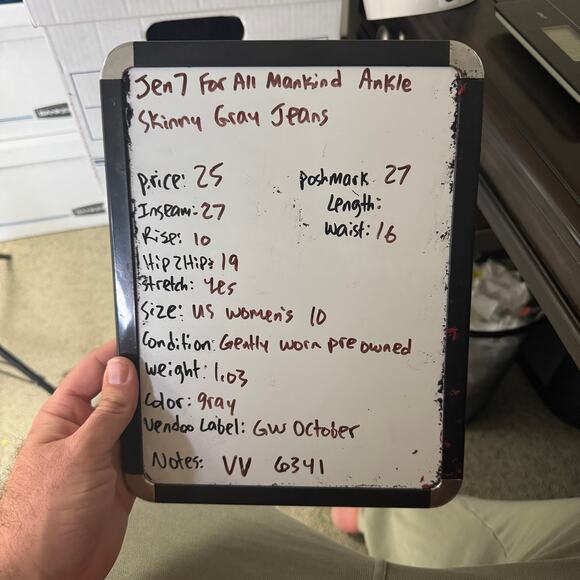 Jen7 For All Mankind Ankle
Skinny Gray Jeans
Price: 25
Poshmark 27
Inseam: 27
Length:
Rise: 10
Waist: 16
Hip 2 Hip: 19
Stretch: Yes
Size: US Women's 10
Condition: Gently worn pre owned
Weight: 1.03
Color: gray
Vendoo Label: GW October
Notes: VV 6341